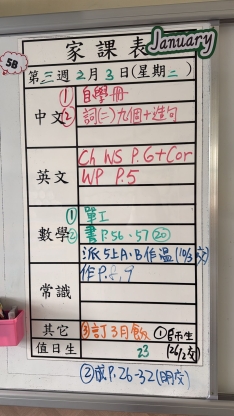 January
家課表
5B
第三週2月3日(星期二)
中文
①自學冊
②詞(二)九個+造句
英文
Ch WS P.6+Cor
WP P.5
數學
①單工
②書P.56-57⑳
派5上A、B作溫(10/3交)
常識
作P.8,9
其它
③訂3月飯
①
生
(26/2交)
值日生
23
②成P.26-32(明交)